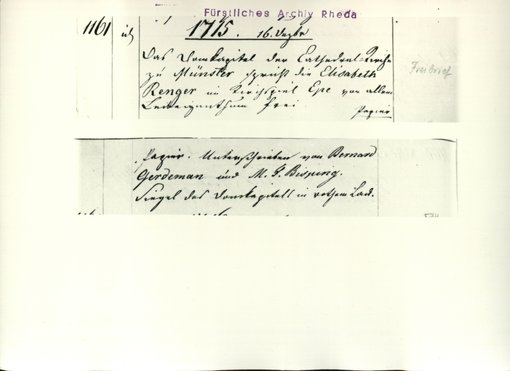 Fürstliches Archiv Rheda
1161
1715. 16. Dezbr
Das Domkapitel der Cathedral-Kirche
zu Münster spricht die Elisabeth
Renger im Kirchspiel Epe von allem
Leibeigenthum frei
Papier
Freibrief
Papier. Unterschrieben von Bernard
Gerdeman und M. G. Bisping.
Siegel des Domkapitels in rothem Lack.